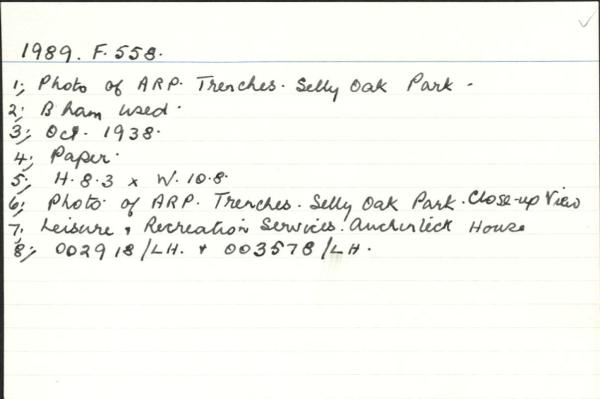 1989. F.558.
1; Photo of ARP. Trenches. Selly Oak Park.
2; B'ham used.
3; Oct. 1938.
4; Paper.
5; H. 8.3 x W. 10.8.
6; Photo of ARP. Trenches. Selly Oak Park. Close-up View
7; Leisure & Recreation Services. Auchinleck House
8; 002918/LH. & 003578/LH.